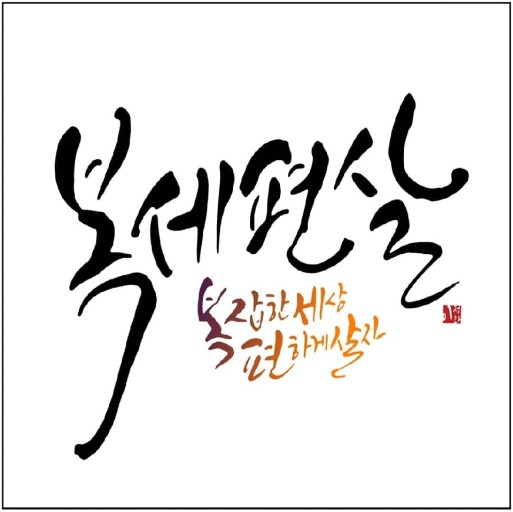 복세편살
복잡한세상
편하게살자